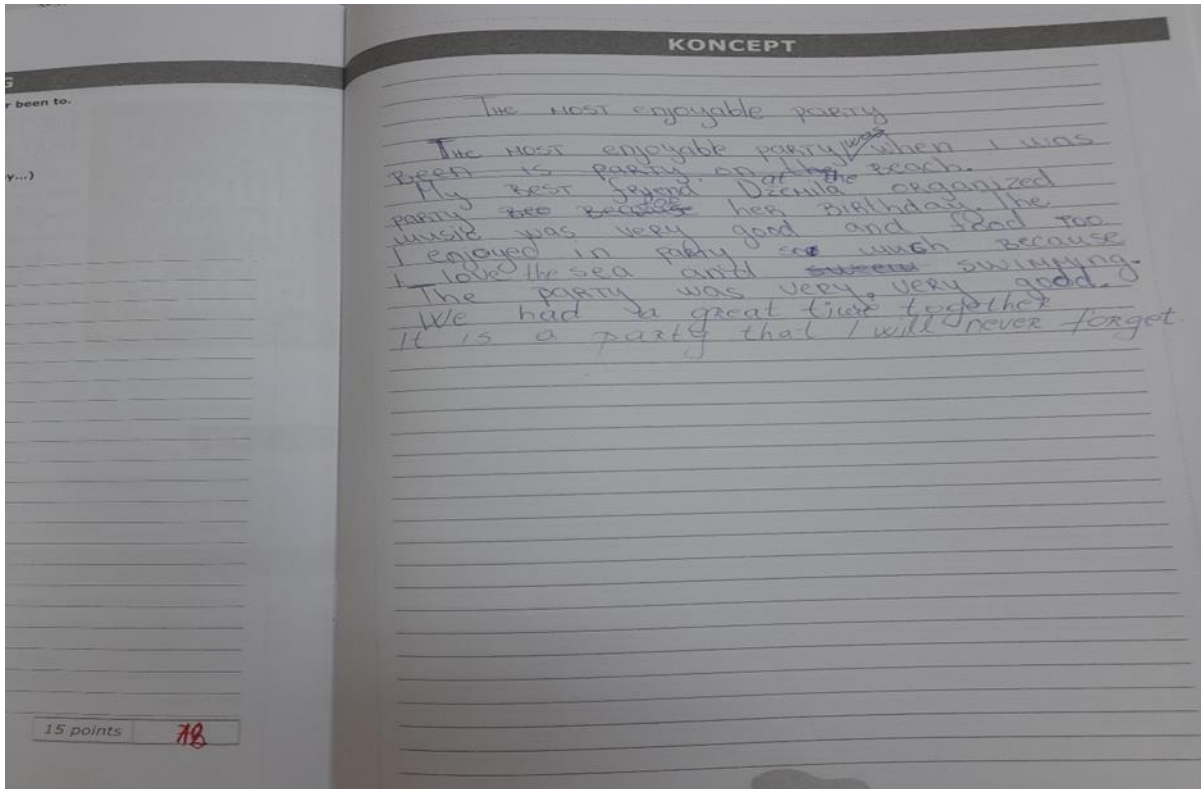 KONCEPT
r been to.
y...)
The most enjoyable party
The most enjoyable party was when I was
been is party on the beach.
at the
My best frjend Džemila organized
party bee her Birthday. The
for
music was very good and food too.
I enjoyed in party so much because
I love the sea and swimming.
The party was very, very good.
We had a great time together
It is a party that I will never forget.
15 points